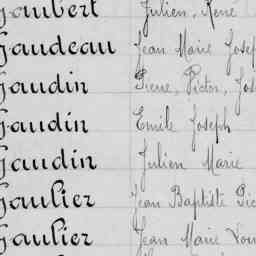 Gaubert Julien, René
Gaudeau Jean Marie Josep
Gaudin Pierre, Victor, Jos
Gaudin Emile Joseph
Gaudin Julien Marie
Gaulier Jean Baptiste Pie
Gaulier Jean Marie Lou